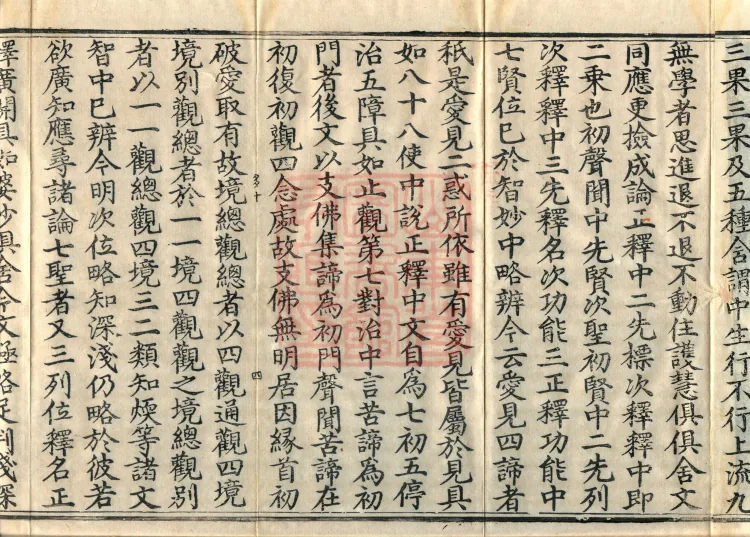 三果三果及五種含謂中生行不行上流九
無學者思進退不退不動住護慧俱俱舍文
同應更撿成論正釋中二先標次釋釋中即
二乘也初聲聞中先賢次聖初賢中二先列
次釋釋中三先釋名次功能三正釋功能中
七賢位已於智妙中略辨今云愛見四諦者
秖是愛見二惑所依雖有愛見皆屬於見具
如八十八使中說正釋中文自為七初五停
治五障具如止觀第七對治中言苦諦為初
門者後文以支佛集諦為初門聲聞苦諦在
初復初觀四念處故支佛無明居因緣首初
多十
四
破愛取有故境總觀總者以四觀通觀四境
境別觀總者於一一境四觀觀之境總觀別
者以一一觀總觀四境三二類知煗等諸文
智中已辨今明次位略知深淺仍略於彼若
欲廣知應尋諸論七聖者又三列位釋名正
釋廣開具如婆沙俱舍今文極略足判淺深